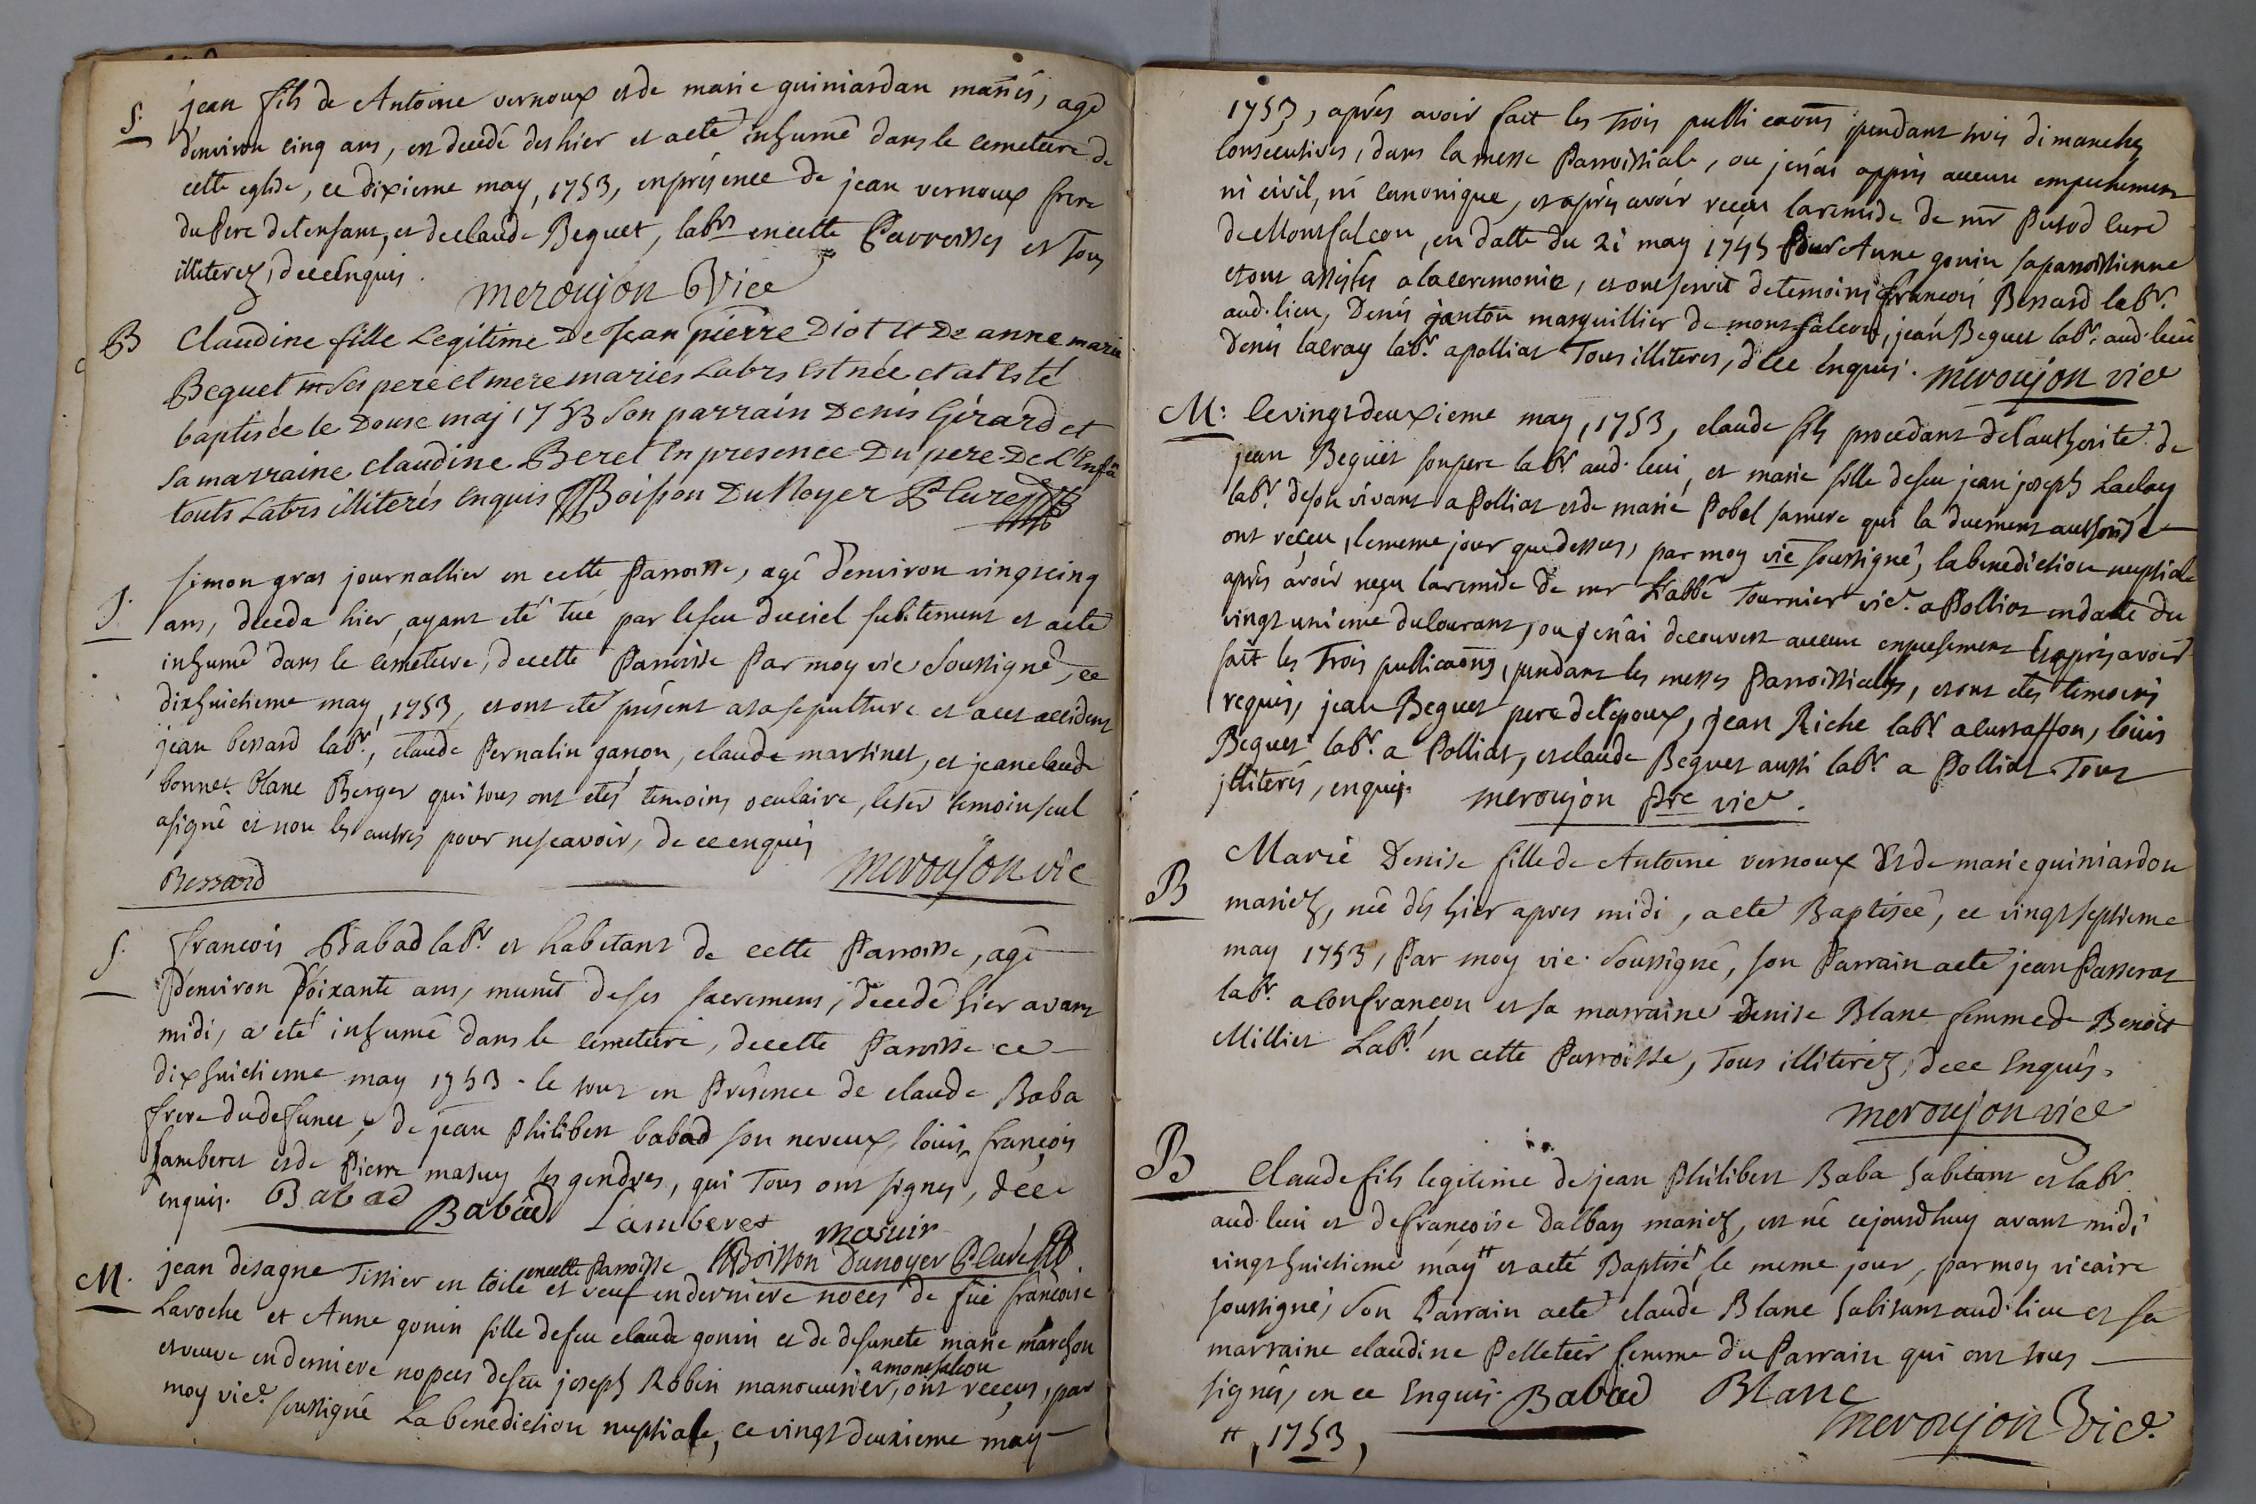 S. jean fils de Antoine vernoux et de marie guiniardan mariés, agé
d'environ cinq ans, est decedé des hier et a eté inhumé dans le cemetiere de
cette eglise, ce dixieme may, 1753, en présence de jean vernoux frere
du Pere de l'enfant, et de claude Beguet, labr. en cette Parroisses et Tous
illiterez, de ce Enquis.
meroujon Vice
B Claudine fille Legitime De Jean pierre Diot et De anne marie
Beguet ses pere et mere mariés Labrs Est née et at Esté
baptisée le Douse maj 1753 Son parrain Denis Gérard et
Sa marraine claudine Beret En presence Du pere De L'Enfã
touts Labrs illiterés Enquis Boisson Du Noyer Curé
S. Simon gras journallier en cette Parroisse, agé d'environ vingt cinq
ans, deceda hier, ayant eté tué par le feu du ciel subitement et a eté
inhumé dans le cemetiere, de cette Parroisse Par moy vic Soussigné, ce
dixhuictieme may, 1753, et ont eté présent a sa sepulture et a cet accident
jean bessard labr., claude Pernatin garçon, claude martinet, et jean claude
bonnet blanc Berger qui tous ont etés temoins oculaire, le 1er temoin seul
a signé et non les autres pour ne scavoir, de ce enquis
Bessard meroujon vic
S. francois Babad labr. et habitant de cette Parroisse, agé
d'environ soixante ans, munit de ses sacremens, decedé hier avant
midi, a eté inhumé dans le cemetiere, de cette Parroisse ce
dixhuictieme may 1753. le tout en Présence de claude Baba
frere du defunct, de jean Philibert babad son neveux, louis françois
Lamberet et de Pierre masuy ses gendres, qui Tous ont signes, de ce
enquis. Babad Babad Lamberet masuir
Boisson Dunoyer Curé
M. jean desagne Tissier en toile en cette Parroisse et veuf en derniere noces de fue françoise
Laroche et Anne gonin fille de feu claude gonin et de defuncte marie marchon
et veuve en derniere nopces de feu joseph Robin manouvrier, a monfalcon ont recçus, par
moy vic. soussigné La benediction nuptiale, ce vingt deuxieme may
1753, aprés avoir fait les Trois publicaons pendant trois dimanches
consecutives, dans la messe Parroissiale, ou je n'ai appris aucune empechement
ni civil, ni canonique, et aprés avoir recçu la remise de mr Putod curé
de Montfalcon, en datte du 21 may 1745 Pour Anne gonin sa parroissienne
et ont assistes a la ceremonie, et ont servit de temoins françois Bessard labr.
aud. lieu, Denis janton marguillier de montfalcon, jean Beguet labr. aud. lieu
Denis lacray labr. a polliat Tous illiteres, d'ece Enquis. meroujon vice
M: le vingt deuxieme may, 1753, claude fils procedant de l'authorité de
jean Beguet son pere labr. aud. lieu, et marie fille de feu jean joseph Laclay
labr. de son vivant a Polliat et de marie Pobel sa mere qui la duement authorisé
ont reçeu, le meme jour que dessus, par moy vic soussigné, la benediction nuptiale
aprés avoir reçu la remise de mr L'abbé Tournier vic. a Polliat en datte du
vingt unieme du courant, ou je n'ai decouvert aucune empechement et aprés avoir
fait les Trois publicaons, pendant les messes Parroissiales, et ont etes temoins
requis, jean Beguet pere de l'epoux, jean Riche labr. a curtaffon, louis
Beguet labr. a Polliat, et claude Beguet aussi labr. a Polliat. Tous
illiterés, enquis. meroujon Pre vic.
B Marie Denise fille de Antoine vernoux Et de marie guiniardon
mariez, née dés hier apres midi, a eté Baptisée, ce vingt septieme
may 1753, Par moy vic. Soussigné, son Parrain a eté jean Passerat
labr. a confrançon et sa marraine denise Blanc femme de Benoit
Milliet Labr. en cette Parroisse, Tous illiterez, de ce Enquis.
meroujon vice
B Claude fils legitime de jean Philibert Baba habitant et labr.
aud. lieu et de françoise dalban mariez, est né cejourd'huy avant midi
vingt huictieme may # et a eté Baptisé le meme jour, par moy vicaire
soussigné, Son Parrain a eté claude Blanc habitant aud. lieu et sa
marraine claudine Pelletier femme du Parrain qui ont tous
signés, en ce Enquis. Babad Blanc
# , 1753, meroujon Vic.